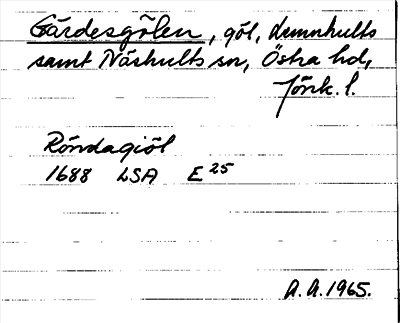 Gärdesgölen, göl, Lemnhults
samt Näshults sn, Östra hd,
Jönk. l.
Röndagiöl
1688 LSA E 25
A.A. 1965.